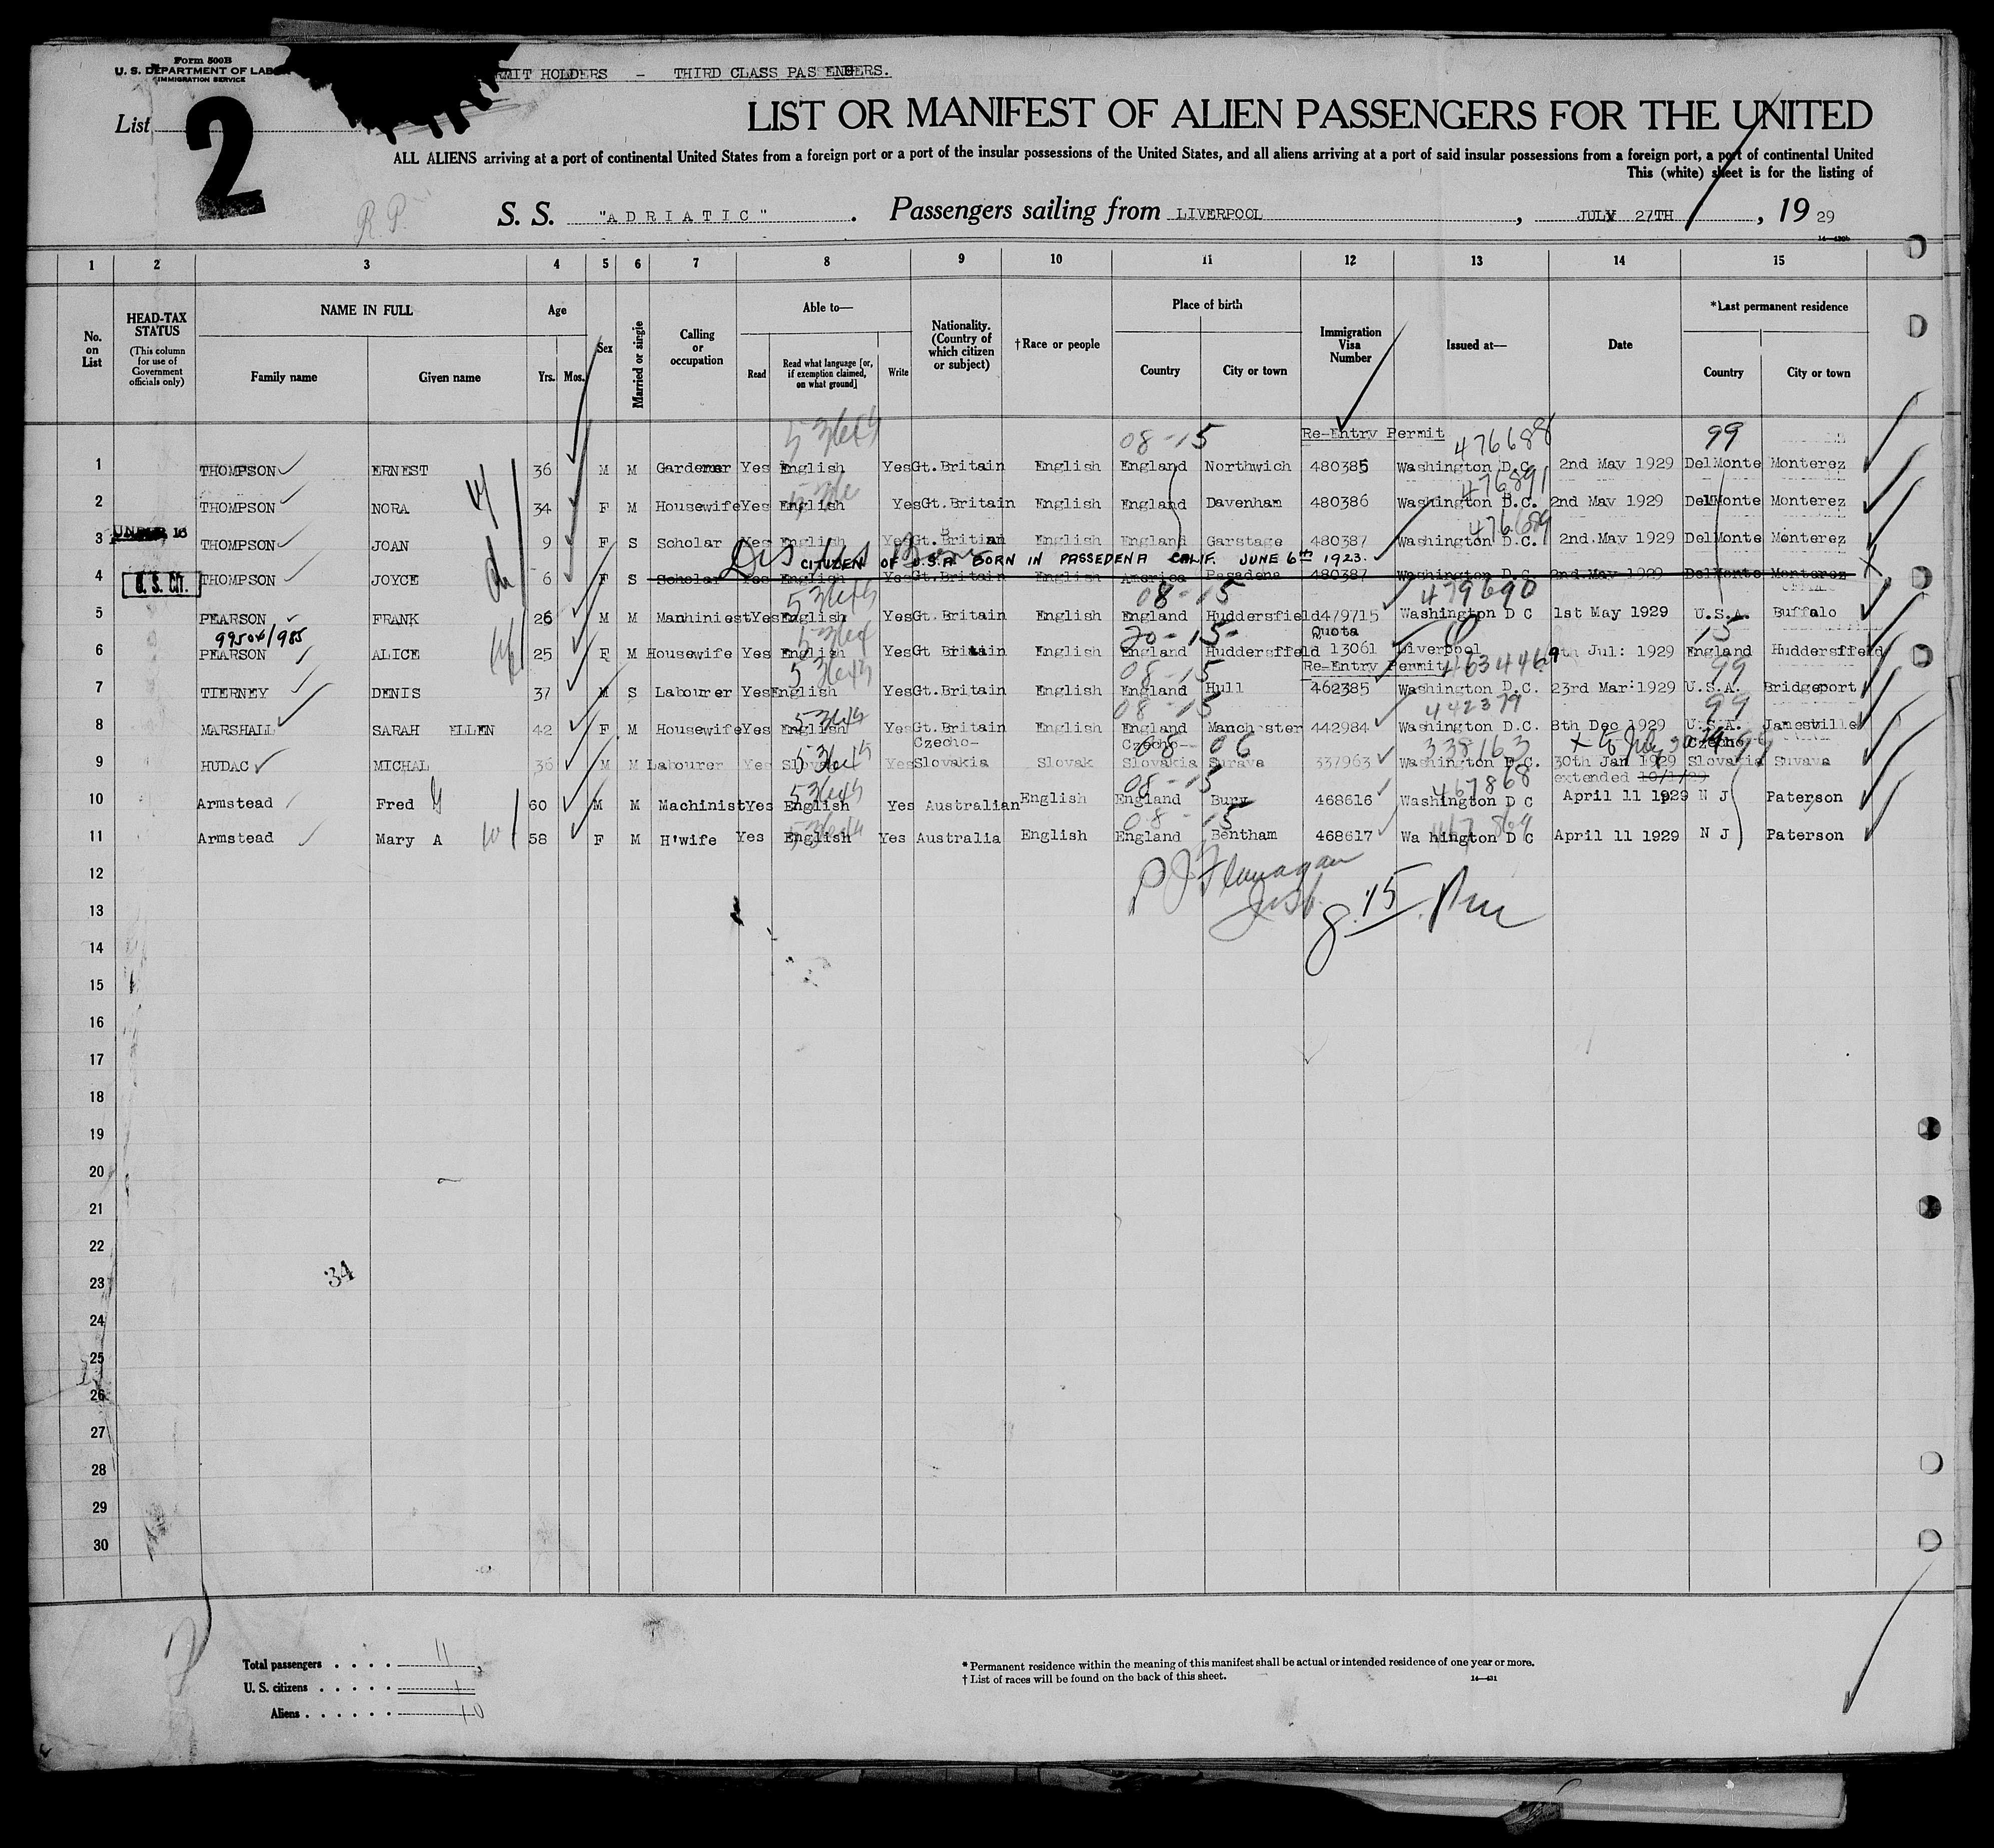 Form 500B
U. S. DEPARTMENT OF LAB
IMMIGRATION SERVICE
RMIT HOLDERS - THIRD CLASS PASSENGERS.
List 2
LIST OR MANIFEST OF ALIEN PASSENGERS FOR THE UNITED
ALL ALIENS arriving at a port of continental United States from a foreign port or a port of the insular possessions of the United States, and all aliens arriving at a port of said insular possessions from a foreign port, a port of continental United
This (white) sheet is for the listing of
R.P.
S. S. "ADRIATIC" . Passengers sailing from LIVERPOOL , JULY 27TH , 19 29
14-430b
1 2 3 4 5 6 7 8 9 10 11 12 13 14 15
No. on List
HEAD-TAX STATUS
(This column for use of Government officials only)
NAME IN FULL
Family name Given name
Age
Yrs. Mos.
Sex
Married or single
Calling or occupation
Able to—
Read
Read what language [or, if exemption claimed, on what ground]
Write
Nationality. (Country of which citizen or subject)
†Race or people
Place of birth
Country City or town
Immigration Visa Number
Issued at—
Date
*Last permanent residence
Country City or town
08-15 Re-Entry Permit 476688 99
1 THOMPSON ERNEST 36 M M Gardener Yes English Yes Gt.Britain English England Northwich 480385 Washington D.C. 2nd May 1929 DelMonte Monterez
476891
2 THOMPSON NORA 34 F M Housewife Yes English Yes Gt.Britain English England Davenham 480386 Washington D.C. 2nd May 1929 DelMonte Monterez
UNDER 16 476689
3 THOMPSON JOAN 9 F S Scholar Yes English Yes Gt.Britian English England Garstage 480387 Washington D.C. 2nd.May 1929 DelMonte Monterez
CITIZEN OF U.S.A BORN IN PASSEDENA CALIF. JUNE 6th 1923.
4 U. S. CIT. THOMPSON JOYCE 6 F S Scholar Yes English Yes Gt.Britain English America Pasadena 480387 Washington D.C 2nd.May 1929 DelMonte Monterez
08-15 479690
5 PEARSON FRANK 26 M M Manhiniest Yes English Yes Gt.Britain English England Huddersfield 479715 Washington D C 1st May 1929 U.S.A. Buffalo
99504/985 20-15- Quota 15
6 PEARSON ALICE 25 F M Housewife Yes English Yes Gt Britain English England Huddersffeld 13061 Liverpool Jul: 1929 England Huddersffeld
08-15 Re-Entry Permit 99
7 TIERNEY DENIS 37 M S Labourer Yes English Yes Gt.Britain English England Hull 462385 Washington D.C. 23rd Mar:1929 U.S.A. Bridgeport
08-15 442379 99
8 MARSHALL SARAH ELLEN 42 F M Housewife Yes English Yes Gt.Britain English England Manchester 442984 Washington D.C. 8th Dec 1929 U.S.A. Janesville
Czecho- Czecho- 08 06 338163 Czecho-
9 HUDAC MICHAL 36 M M Labourer Yes Slovak Yes Slovakia Slovak Slovakia Surava 337963 Washington D.C. 30th Jan 1929 Slovakia Suvava
08-15 467868 extended 10/1/29
10 Armstead Fred G 60 M M Machinist Yes English Yes Australian English England Bury 468616 Washington D C April 11 1929 N J Paterson
08-15 467869
11 Armstead Mary A 58 F M H'wife Yes English Yes Australia English England Bentham 468617 Wa hington D C April 11 1929 N J Paterson
12
P J Flanagan
Insp.
13
8.15
14
15
16
17
18
19
20
21
22
23
34
24
25
26
27
28
29
30
Total passengers . . . . 11
U. S. citizens . . . . . 1
Aliens . . . . . . 10
* Permanent residence within the meaning of this manifest shall be actual or intended residence of one year or more.
† List of races will be found on the back of this sheet.
14-431